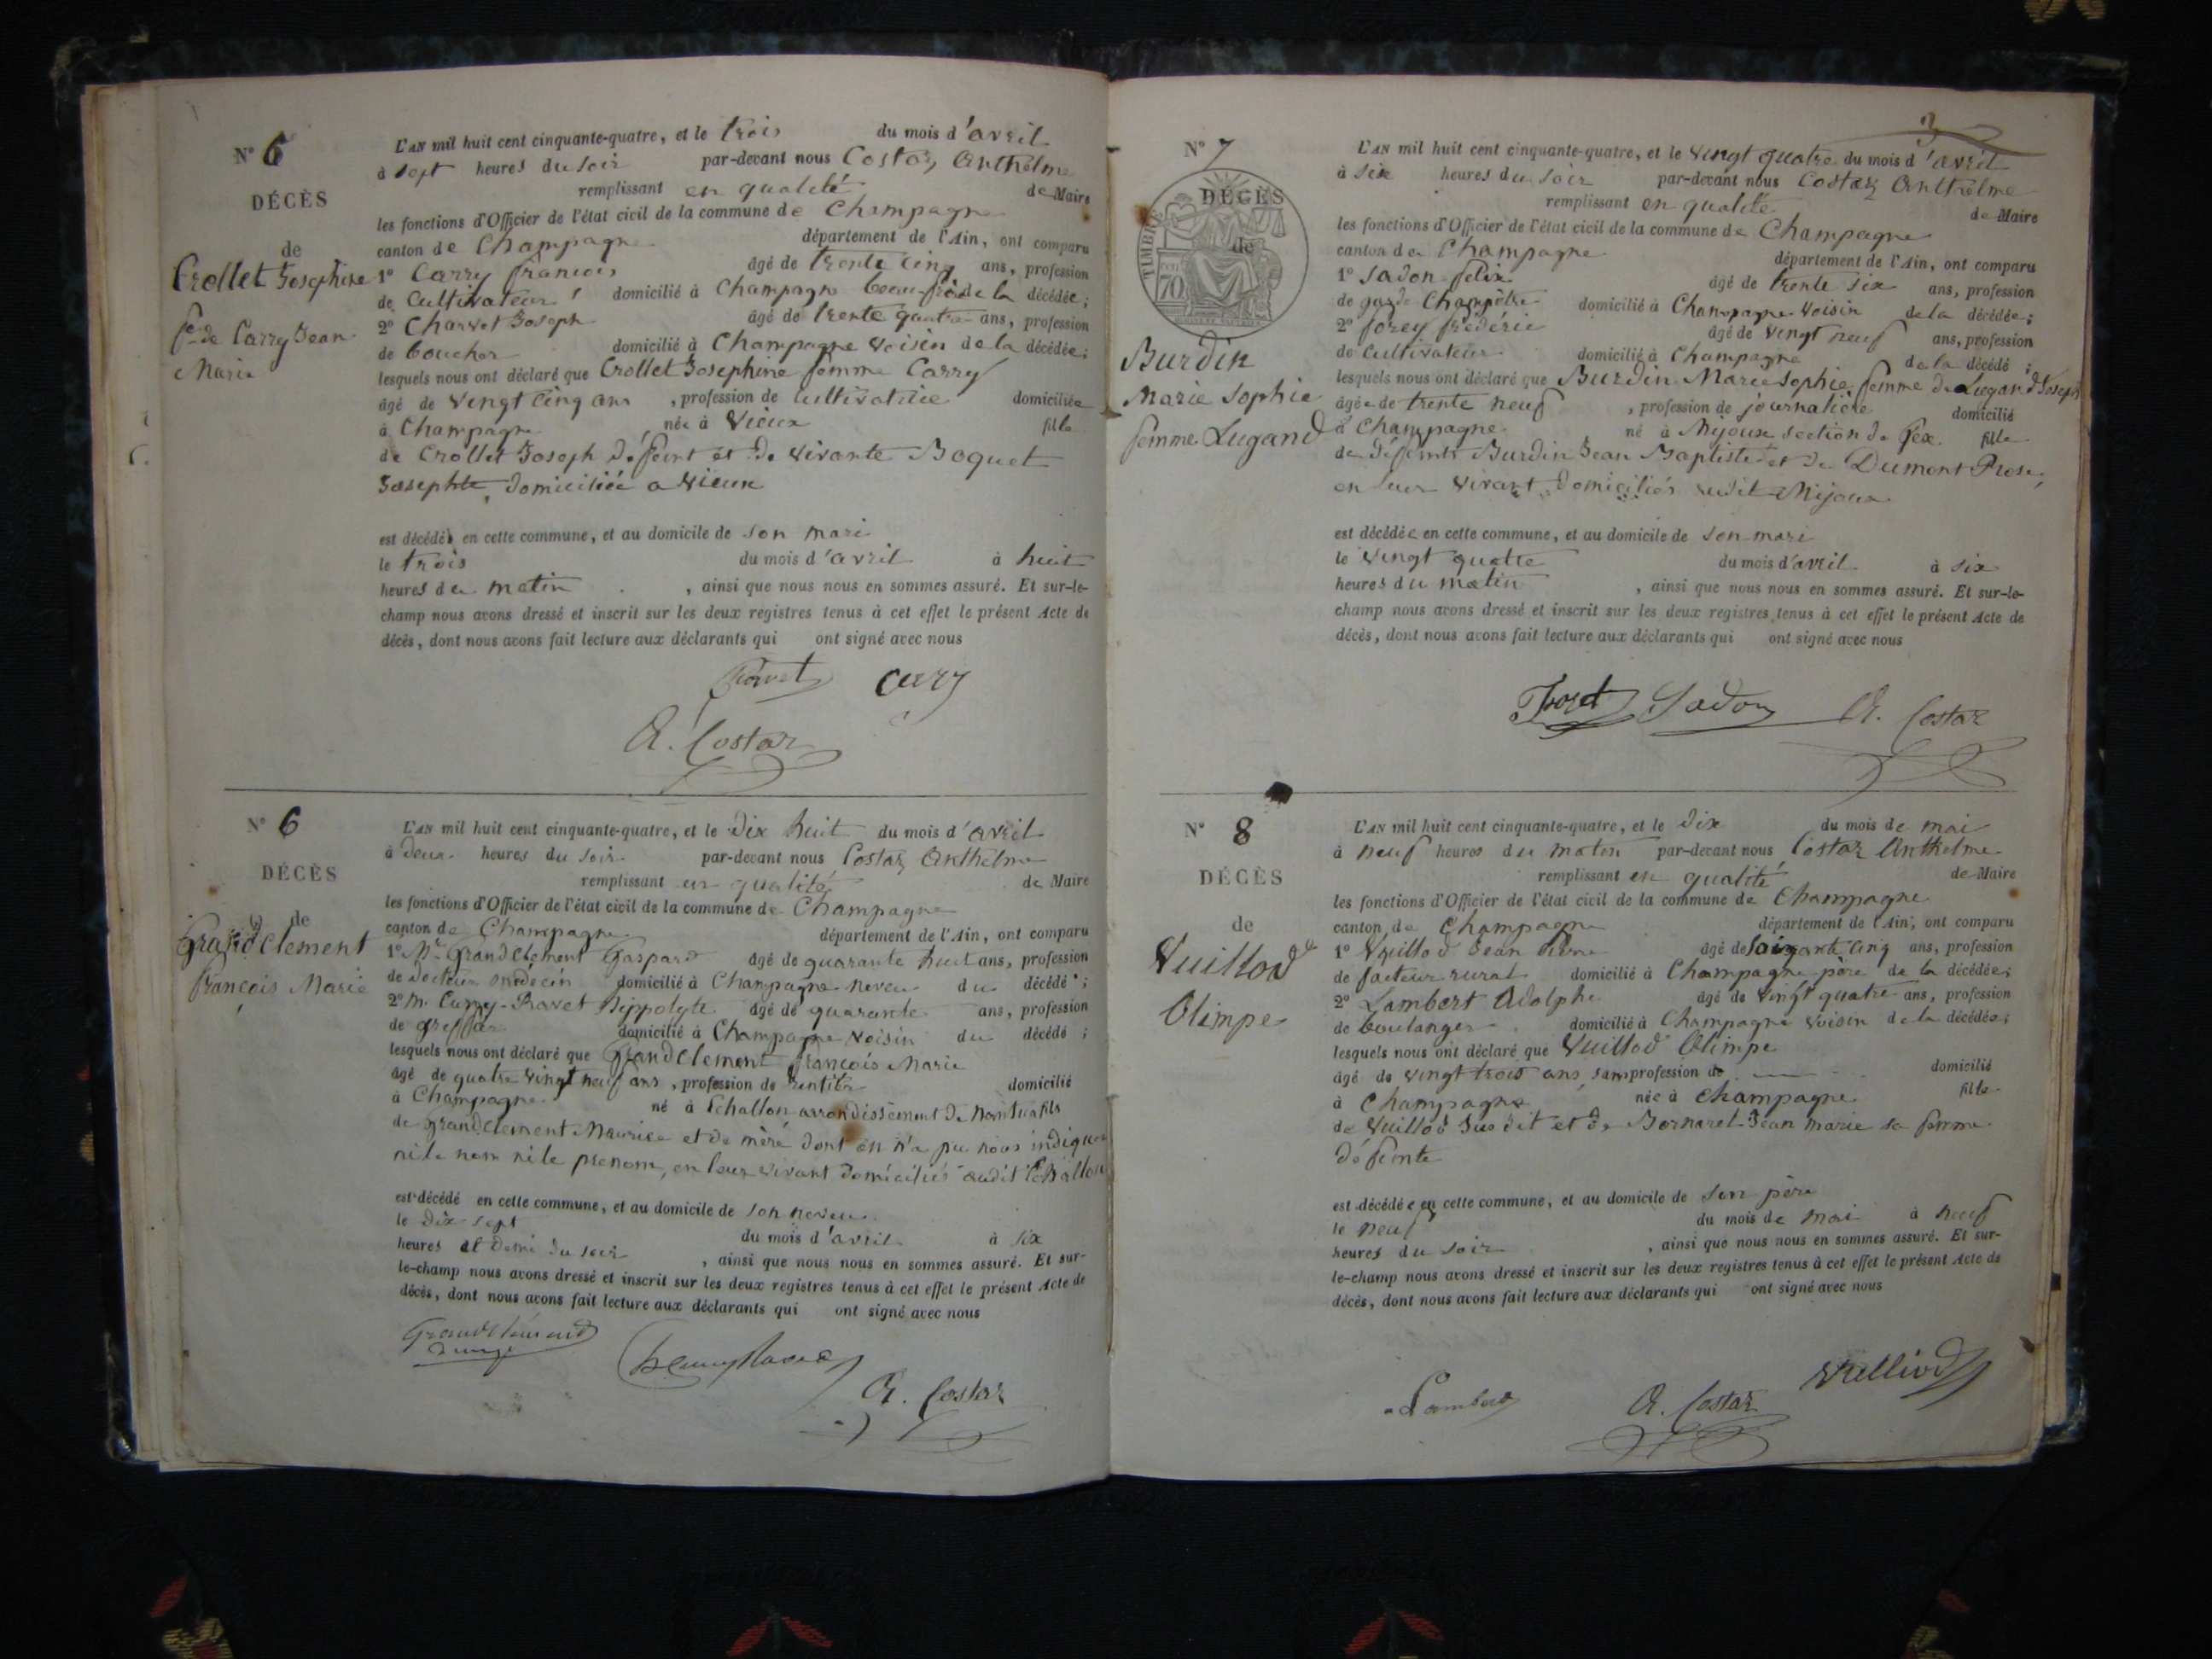 N° 6
DÉCÈS
de
Crollet Josephine
fe de Carry Jean
Marie
L'AN mil huit cent cinquante-quatre, et le trois du mois d'avril
à sept heures du soir par-devant nous Costaz Anthelme
remplissant en qualité de Maire
les fonctions d'Officier de l'état civil de la commune de Champagne
canton de Champagne département de l'Ain, ont comparu
1° Carry françois âgé de trente cinq ans, profession
de Cultivateur domicilié à Champagne beau-frère de la décédée;
2° Charvet Joseph âgé de trente quatre ans, profession
de boucher domicilié à Champagne voisin de la décédée;
lesquels nous ont déclaré que Crollet Josephine femme Carry
âgé de vingt cinq ans, profession de cultivatrice domiciliée
à Champagne née à Vieux fille
de Crollet Joseph défunt et de vivante Boquet
Josephte, domiciliée a Vieux
est décédée en cette commune, et au domicile de son mari
le trois du mois d'avril à huit
heures du matin, ainsi que nous nous en sommes assuré. Et sur-le-
champ nous avons dressé et inscrit sur les deux registres tenus à cet effet le présent Acte de
décès, dont nous avons fait lecture aux déclarants qui ont signé avec nous
A. Costaz
N° 6
DÉCÈS
de
Grandclement
françois Marie
L'AN mil huit cent cinquante-quatre, et le dix huit du mois d'avril
à deux heures du soir par-devant nous Costaz Anthelme
remplissant en qualité de Maire
les fonctions d'Officier de l'état civil de la commune de Champagne
canton de Champagne département de l'Ain, ont comparu
1° Mr Grandclement Gaspard âgé de quarante huit ans, profession
de docteur medecin domicilié à Champagne neveu du décédé;
2° M. Ravet hippolyte âgé de quarante ans, profession
de greffier domicilié à Champagne voisin du décédé;
lesquels nous ont déclaré que Grandclement françois Marie
âgé de quatre vingt neuf ans, profession de rentier domicilié
à Champagne né à Echallon arrondissement de Nantua fils
de Grandclement Maurice et de mère dont on n'a pu nous indiquer
ni le nom ni le prenom, en leur vivant domiciliés audit Echallon
est décédé en cette commune, et au domicile de son neveu
le dix-sept du mois d'avril à six
heures et demi du soir, ainsi que nous nous en sommes assuré. Et sur-
le-champ nous avons dressé et inscrit sur les deux registres tenus à cet effet le présent Acte de
décès, dont nous avons fait lecture aux déclarants qui ont signé avec nous
A. Costaz
3
N° 7
DÉCÈS
de
TIMBRE
70
Burdin
Marie Sophie
femme Lugand
L'AN mil huit cent cinquante-quatre, et le vingt quatre du mois d'avril
à six heures du soir par-devant nous Costaz Anthelme
remplissant en qualité de Maire
les fonctions d'Officier de l'état civil de la commune de Champagne
canton de Champagne département de l'Ain, ont comparu
1° Sadon felix âgé de trente six ans, profession
de garde Champêtre domicilié à Champagne voisin de la décédée;
2° forey frédéric âgé de vingt neuf ans, profession
de cultivateur domicilié à Champagne de la décédé;
lesquels nous ont déclaré que Burdin Marie Sophie femme de Lugand Joseph
âgée de trente neuf, profession de journalière domicilié
à Champagne né à Mijoux section de Gex fille
de défunts Burdin Jean Baptiste et de Dumont Rose,
en leur vivant domiciliés audit Mijoux
est décédée en cette commune, et au domicile de son mari
le vingt quatre du mois d'avril à six
heures du matin, ainsi que nous nous en sommes assuré. Et sur-le-
champ nous avons dressé et inscrit sur les deux registres tenus à cet effet le présent Acte de
décès, dont nous avons fait lecture aux déclarants qui ont signé avec nous
Sadon A. Costaz
N° 8
DÉCÈS
de
Vuillod
Olimpe
L'AN mil huit cent cinquante-quatre, et le dix du mois de mai
à neuf heures du matin par-devant nous Costaz Anthelme
remplissant en qualité de Maire
les fonctions d'Officier de l'état civil de la commune de Champagne
canton de Champagne département de l'Ain, ont comparu
1° Vuillod Jean âgé de soixante cinq ans, profession
de facteur rural domicilié à Champagne père de la décédée;
2° Lambert Adolphe âgé de vingt quatre ans, profession
de boulanger domicilié à Champagne voisin de la décédée;
lesquels nous ont déclaré que Vuillod Olimpe
âgé de vingt trois ans, sans profession de domicilié
à Champagne née à Champagne fille
de Vuillod susdit et de Bornarel Jean marie sa femme
défunte
est décédée en cette commune, et au domicile de son père
le neuf du mois de mai à neuf
heures du soir, ainsi que nous nous en sommes assuré. Et sur-
le-champ nous avons dressé et inscrit sur les deux registres tenus à cet effet le présent Acte de
décès, dont nous avons fait lecture aux déclarants qui ont signé avec nous
Lambert A. Costaz Vuilliod